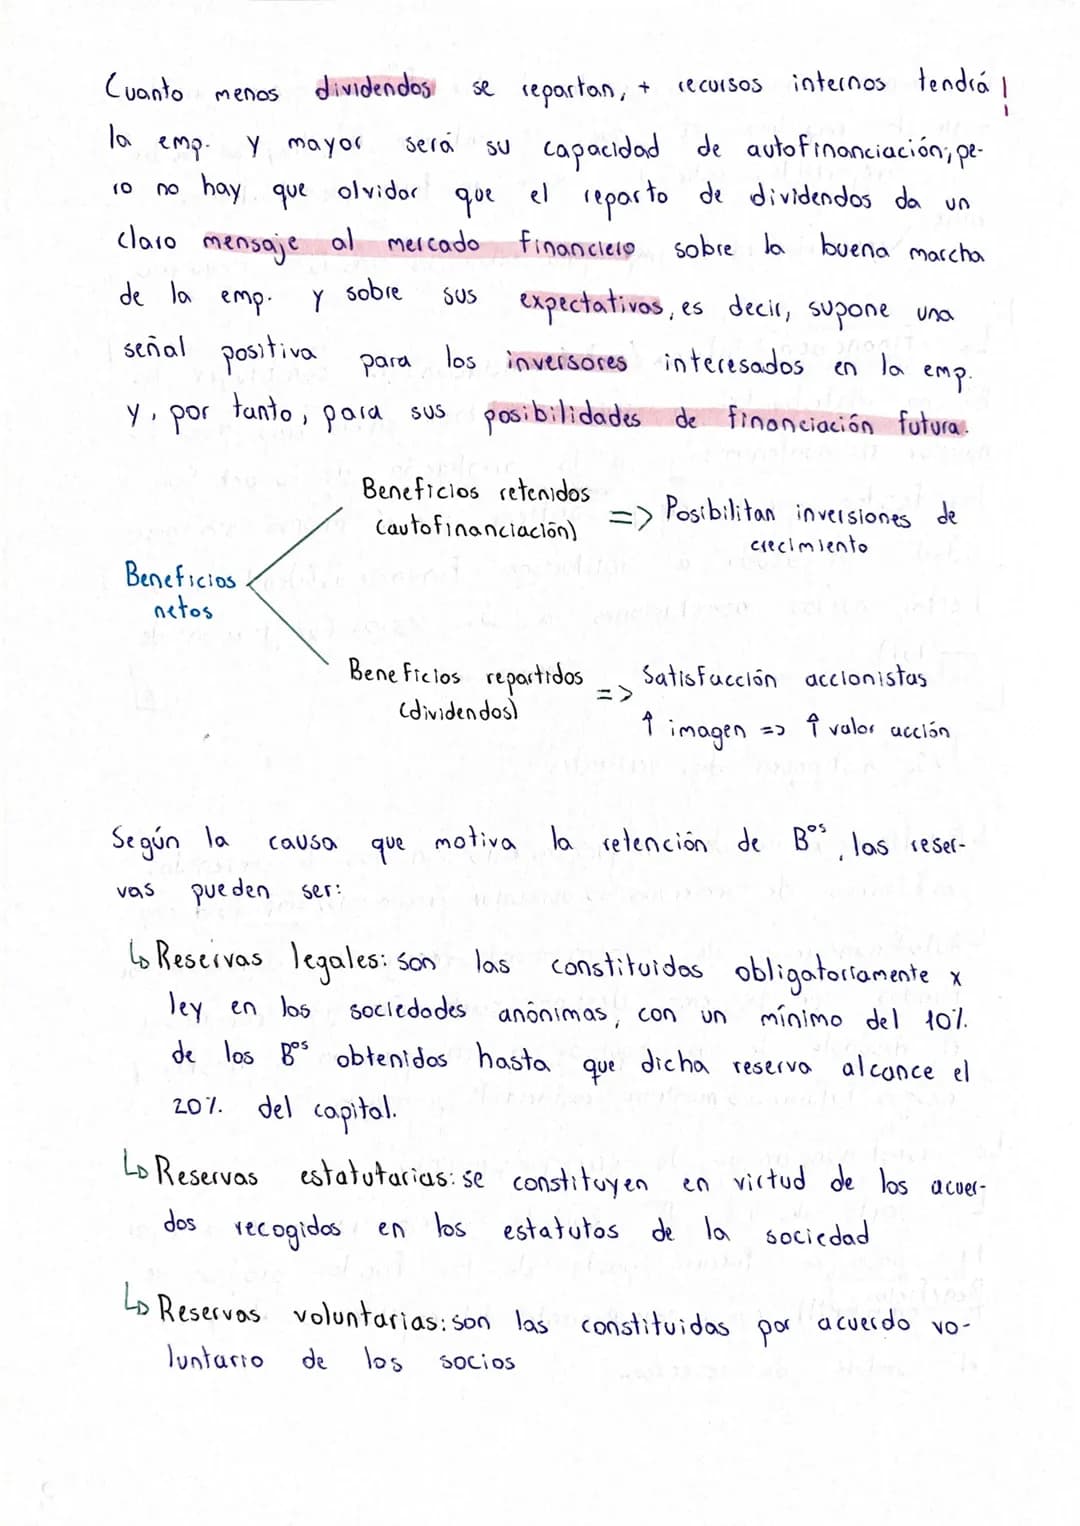 Cuanto menos dividendos se repartan, + recursos internos tendrá !
la emp. y mayor será su capacidad de autofinanciación; pe-
ro no hay que olvidar que el reparto de dividendos da un
claro mensaje al mercado financiero sobre la buena marcha
de la emp. y sobre sus expectativas, es decir, supone una
señal positiva para los inversores interesados en la emp.
y, por tanto, para sus posibilidades de financiación futura.
Beneficios retenidos
(autofinanciación)
=> Posibilitan inversiones de
crecimiento
Beneficios
netos
Beneficios repartidos
(dividendos)
=> Satisfacción accionistas
↑ imagen => ↑ valor acción
Según la causa que motiva la retención de Bºˢ, las reser-
vas pueden ser:
↳ Reservas legales: son las constituidas obligatoriamente x
ley en las sociedades anónimas, con un mínimo del 10%
de los Bºˢ obtenidos hasta que dicha reserva alcance el
20% del capital.
↳ Reservas estatutarias: se constituyen en virtud de los acuer-
dos recogidos en los estatutos de la sociedad
↳ Reservas voluntarias: son las constituidas por acuerdo vo-
luntario de los socios